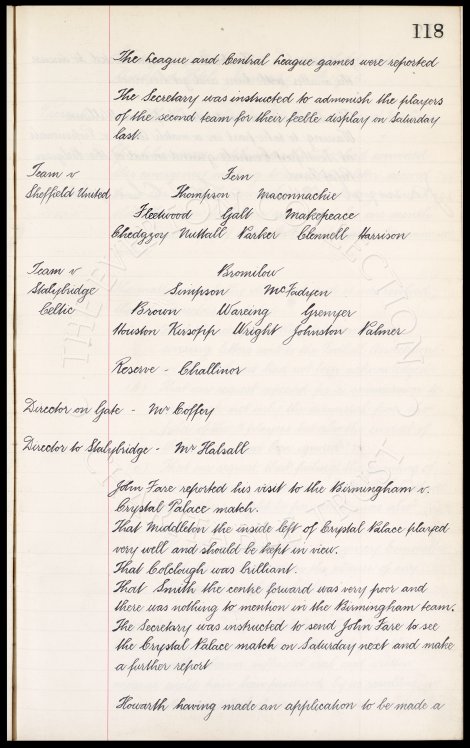 118
The League and Central League games were reported
The Secretary was instructed to admonish the players
of the second team for their feeble display on Saturday
last.
Team v Fern
Sheffield United Thompson Maconnachie
Fleetwood Galt Makepeace
Chedgzoy Nuttall Parker Clennell Harrison
Team v Bromilow
Stalybridge Simpson McFadyen
Celtic Brown Wareing Grenyer
Houston Kirsopp Wright Johnston Palmer
Reserve - Challinor
Director on Gate - Mr Coffey
Director to Stalybridge - Mr Halsall
John Fare reported his visit to the Birmingham v.
Crystal Palace match.
That Middleton the inside left of Crystal Palace played
very well and should be kept in view.
That Colclough was brilliant.
That Smith the centre forward was very poor and
there was nothing to mention in the Birmingham team.
The Secretary was instructed to send John Fare to see
the Crystal Palace match on Saturday next and make
a further report
Howarth having made an application to be made a